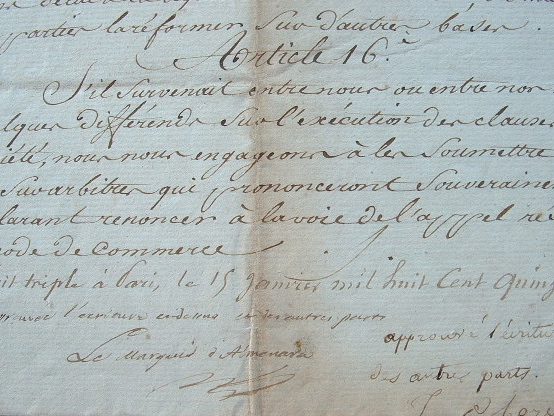 parties la réformer sur d'autres bases.
Article 16.e
S'il survenait entre nous ou entre nos
lques différends sur l'exécution des clauses
iété, nous nous engageons à les soumettre
surarbitres qui prononceront souveraine
larant renoncer à la voie de l'appel re
code de commerce
it triple à Paris, le 15 Janvier mil huit Cent quinz
rouvé l'écriture ci-dessus et des autres parts
approuvé l'écritu
Le Marquis d'Almenara
des autres parts.